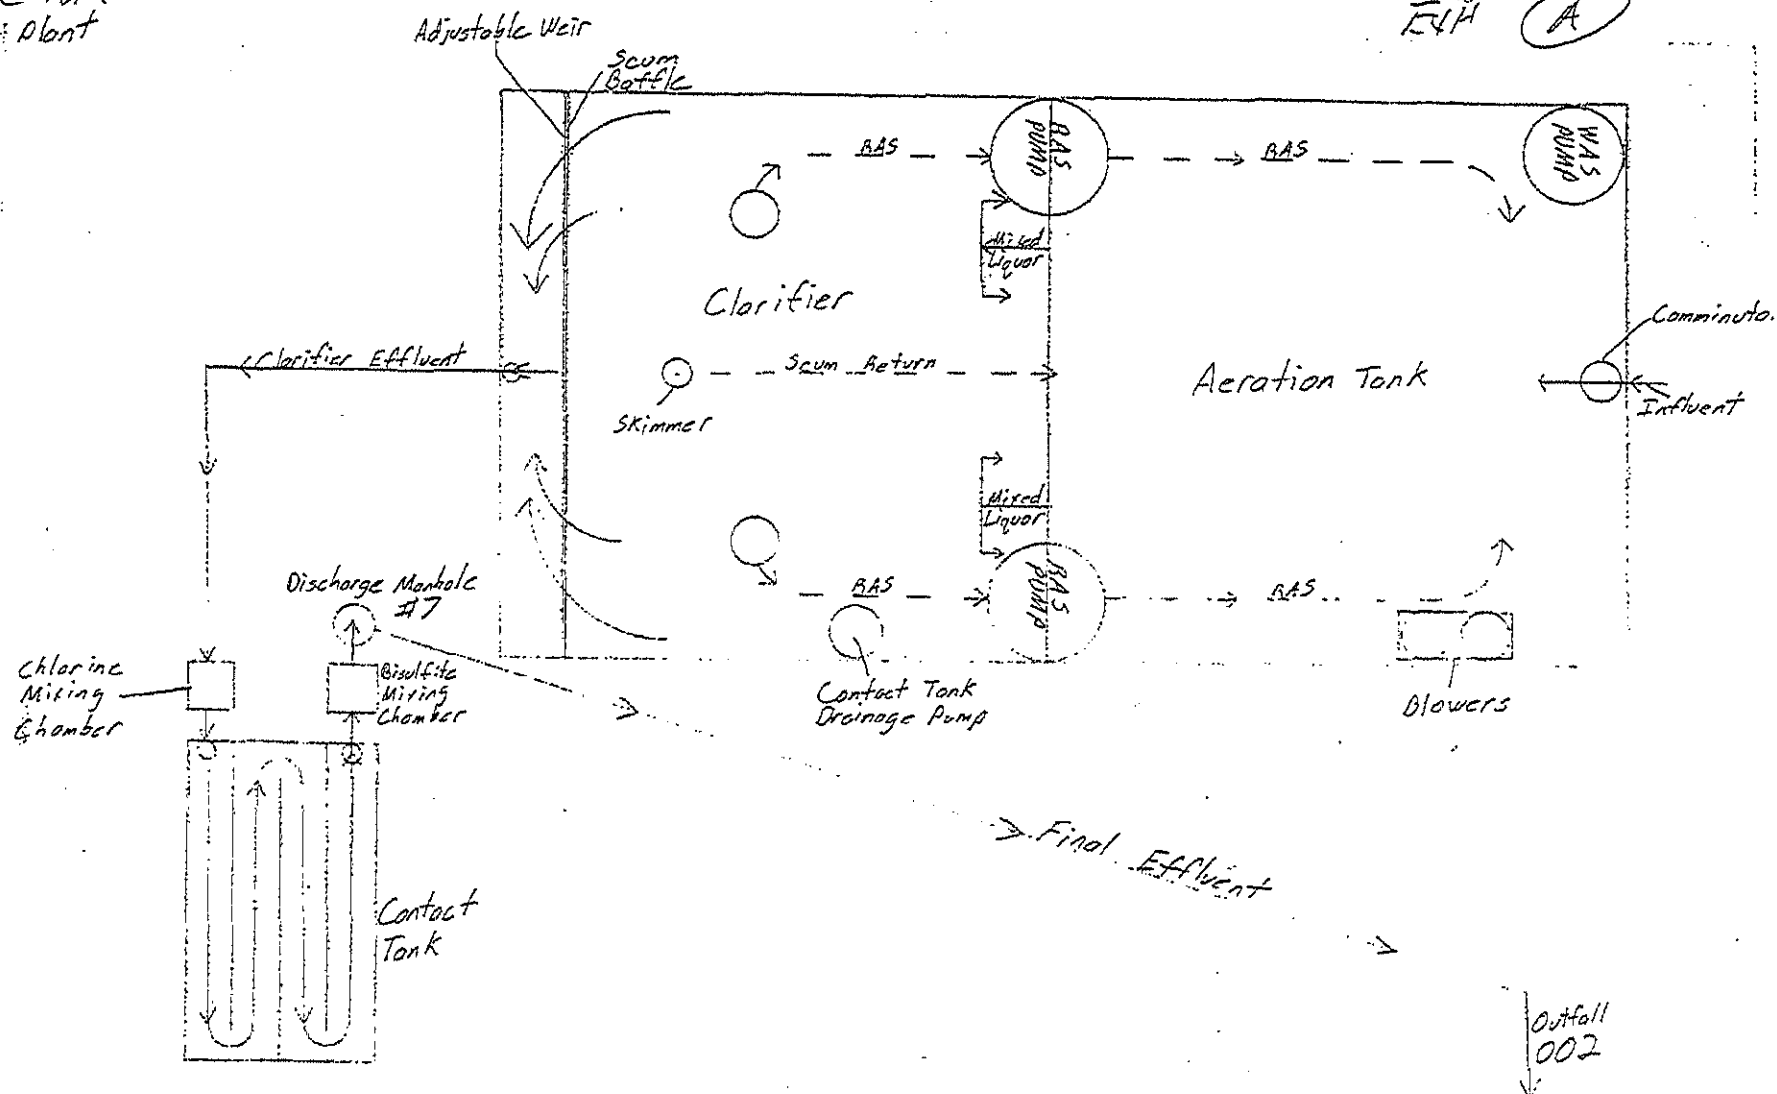 Plant
EXH A
Adjustable Weir
Scum
Baffle
RAS
RAS
PUMP
RAS
WAS
PUMP
Mixed
Liquor
Clarifier
Comminuto.
Clarifier Effluent
Scum Return
Aeration Tank
Influent
Skimmer
Mixed
Liquor
Discharge Manhole
#7
RAS
RAS
PUMP
RAS
Chlorine
Mixing
Chamber
Bisulfite
Mixing
Chamber
Contact Tank
Drainage Pump
Blowers
Final Effluent
Contact
Tank
Outfall
002